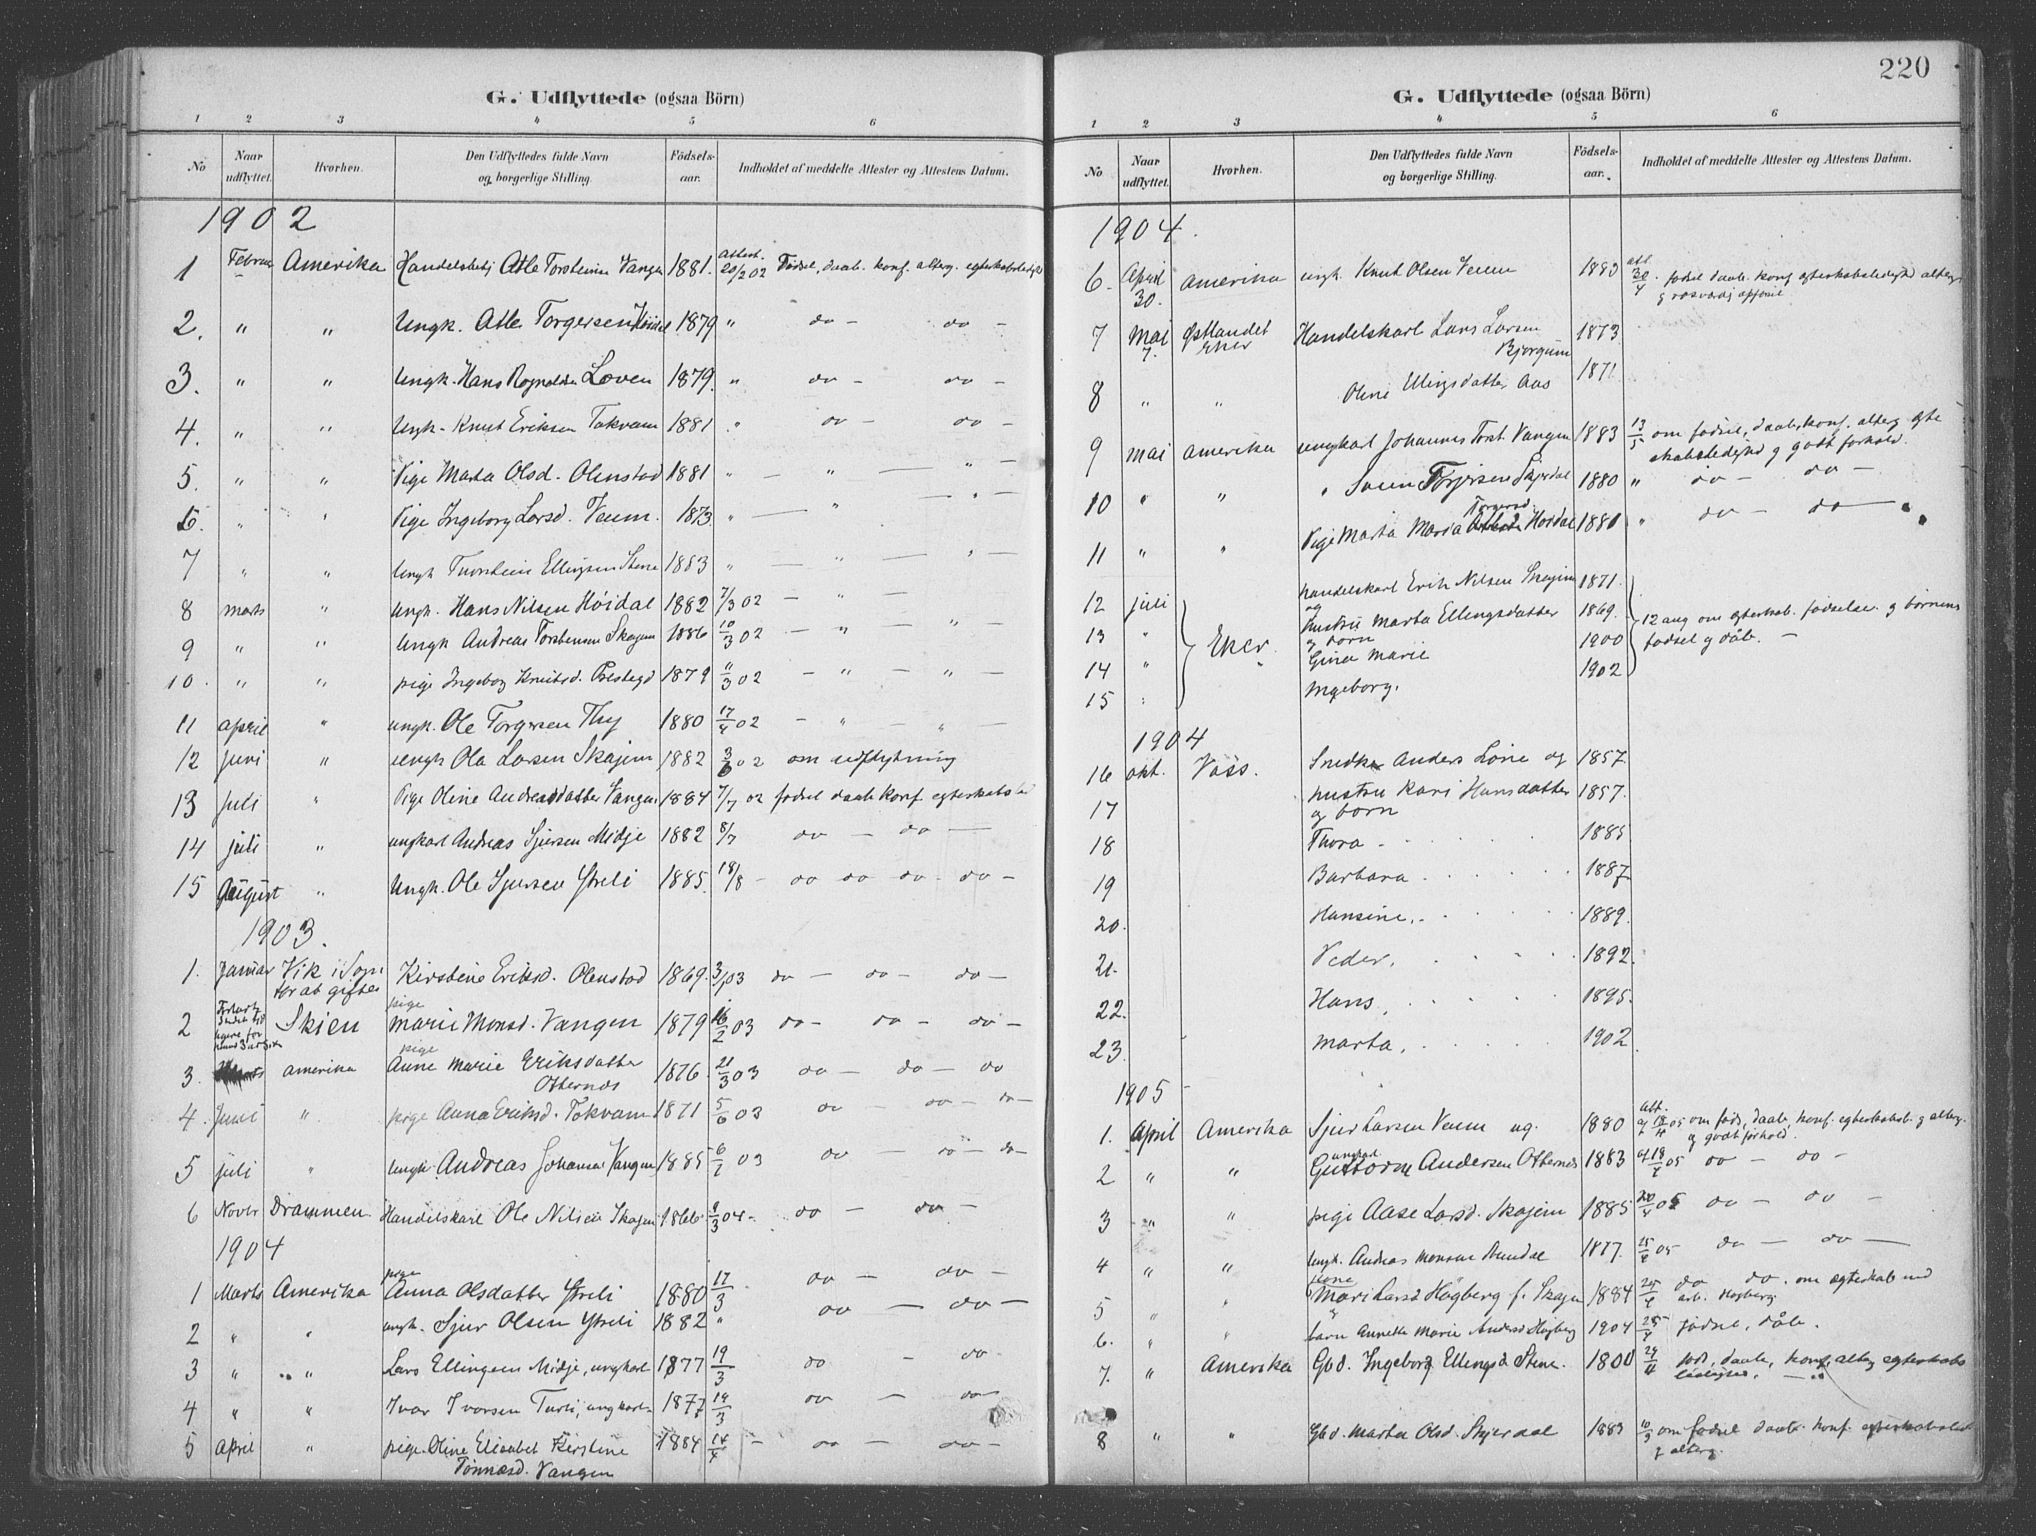 G. Udflyttede (ogsaa Börn)
1 2 3 4 5 6
No Naar udflyttet. Hvorhen. Den Udflyttedes fulde Navn og borgerlige Stilling. Födsels-aar. Indholdet af meddelte Attester og Attestens Datum.
1902
1 Februar Amerika Atle Torsteinsen Vangen 1881. Attest. 20/2 02 Fødsel, daab. konf. alterg.
2. " " Ungk. Atle Torgersen Høidal 1879 " do - do -
3. " " Ungk. Hans Rognaldsen Loven 1879. " do - do -
4. " " Ungk. Knut Eriksen Tokvam 1881 " do - do -
5. " " Pige Marta Olsd. Olenstad 1881 " - " - " -
6. " " Pige Ingeborg Larsd. Veum. 1873 " - " - " -
7 " " Ungk Thorstein Ellingsen Stene 1883 " - " - " -
8 marts " Ungk. Hans Nilsen Höidal 1882 7/3 02 - " -
9 " " Ungk Andreas Torstensen Skajem 1886 10/3 02 - " - " -
10. " " pige Ingeborg Knutsd. Prestegd 1879 11/3 02 - " - " -
11 april " ungk. Ole Torgersen Thy 1880 17/4 02 - " - " -
12 juni " ungk Ola Larsen Skajem 1882 3/6 02 om udflytning
13 juli " Pige Oline Andreasdatter Vangen 1884 7/7 02 fødsel daab konf. egteskabsled
14 juli " ungkarl Andreas Sjursen Midje 1882 8/7 do - do -
15 August " Ungk. Ole Sjursen Ytreli 1885. 18/8 - do do do - do -
1903.
1. Januar Vik i Sogn for at giftes Kirstine Eriksd. Olenstad 1869. 3/1 03 do - do - do -
2 Skien pige Marie Monsd. Vangen 1879 16/2 03 do - do - do -
3. amerika pige Anne Marie Eriksdatter 1876. 21/3 03 do - do - do
Otternes
4. Juni " pige Anna Eriksd. Tokvam 1871 5/6 03 do - do - do -
5 juli " ungk. Andreas Johansen Vangen 1885 03 do - do - do -
6 Novbr Drammen Handelskarl Ole Nilsen Skajem 1866 8/3 04- do - do -
1904
1 Marts Amerika pige Anna Olsdatter Ytreli 1880 17/3 do - do -
2 " " ungk. Sjur Olsen Ytreli 1882 " do - do -
3 " " Lars Ellingsen Midje, ungkarl 1877 19/3 do - do
4 " " Ivar Ivarsen Turli, ungkarl 1877 19/3 do - do
5 april " pige. Oline Elisabet Kirstine 1884 14/4 - do - do -
Tönnesd. Vangen
220
G. Udflyttede (ogsaa Börn)
1 2 3 4 5 6
No Naar udflyttet. Hvorhen. Den Udflyttedes fulde Navn og borgerlige Stilling. Födsels-aar. Indholdet af meddelte Attester og Attestens Datum.
1904.
6. April 30. Amerika ungk. Knut Olsen Veum 1883 att 30/4. fødsel daab. konf egteskabsledighd alterg
7 Mai 7. Østlandet Eker Handelskarl Lars Larsen 1873
Bjørgum
8 " " Oline Ellingsdatter Aas 1871.
9 mai Amerika ungkarl Johannes Torst. Vangen 1883 13/5 om fødsel, daab. konf. alterg egte
skabsledighd g godt forhold.
10 " " " Torjersen Skjerdal 1880 " do - do -
11 " " Pige Marta Maria Torgersd. Høidal 1880 " do - do -
12 juli Handelskarl Erik Nilsen Skajem 1871.
13 " Eker. og hustru Marta Ellingsdatter 1869. 12 aug om egteskab. fødselsr. g børnens
14 " " og børn Gina Marie 1900 fødsel g dåb. -
15 " Ingeborg. 1902
1904
16 okt. Voss. Snedker Anders Lone og 1857.
17 hustru Kari Hansdatter 1857.
og børn
18 Thora 1885
19 Barbara 1887
20. Hansine. 1889.
21. Peder, 1892.
22. Hans, 1895.
23. Marta, 1902
1905
1. April Amerika Sjur Larsen Veum ug. 1880 att. af 18/4 05 om føds, daab, konf. egteskabsl. g alterg.
g godt forhold.
2 " " ungkl Guttorm Andersen Otternes 1883 af 18/4 05 do - do -
3 " " pige Aase Larsd. Skajem 1885 20/4 05 do - do -
4 " " Ungk. Andreas Monsen 1877. 25/4 05 do - do -
5 " " kone Mari Larsd Høgberg f. Skajem 1884 25/4 do do. om egteskab med
arb. Høgberg
6. " " barn Annette Marie Andersd Høgberg 1904 25/4 fødsel, dåb.
7. " Amerika Gbd. Ingeborg Ellingsd Stene. 1880 29/4 føds, daab, konf, alterg egteskabs
ledighed. - "
8 " " Gbd. Marta Olsd. Skjerdal 1883 om fødsel daab. konf. egteskabsled
g alterg.